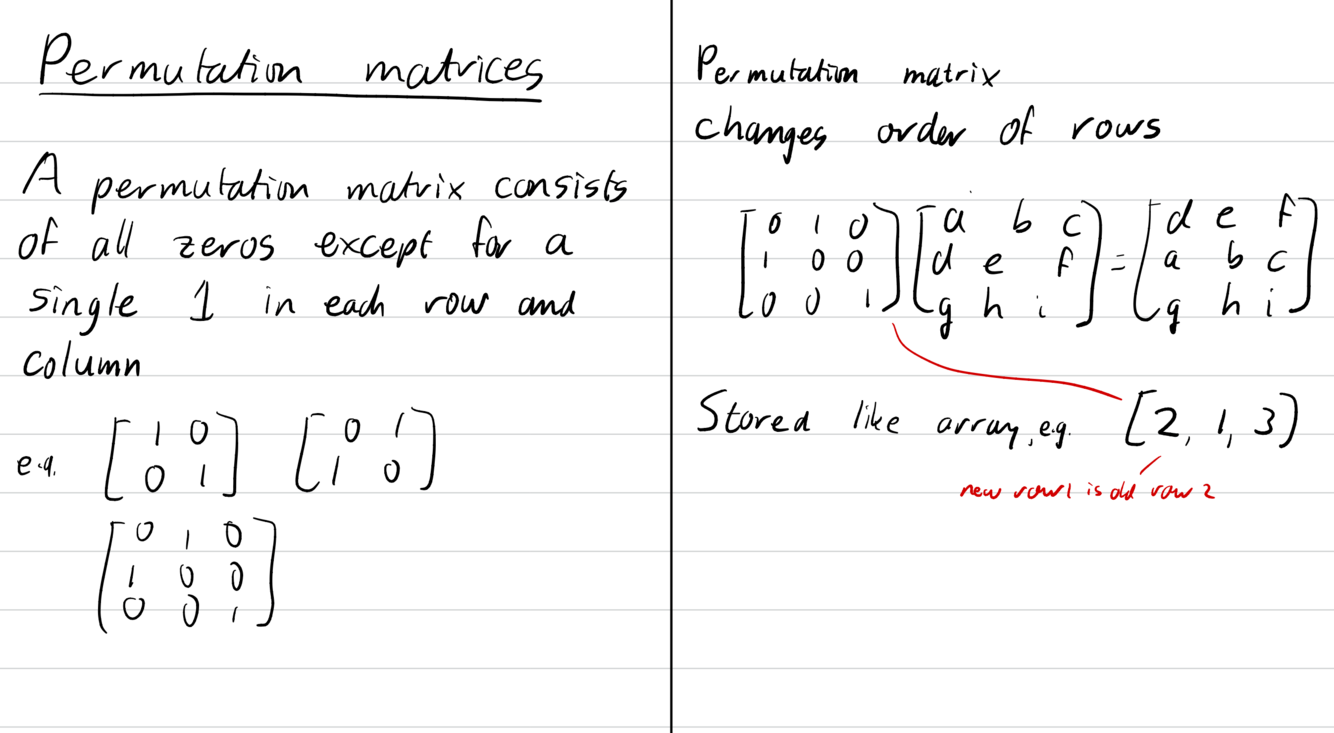 Permutation matrices
A permutation matrix consists
of all zeros except for a
single 1 in each row and
column
e.g. [1 0] [0 1]
[0 1] [1 0]
[0 1 0]
[1 0 0]
[0 0 1]
Permutation matrix
changes order of rows
[0 1 0] [a b c] = [d e f]
[1 0 0] [d e f] [a b c]
[0 0 1] [g h i] [g h i]
Stored like array, e.g. [2, 1, 3]
new row 1 is old row 2